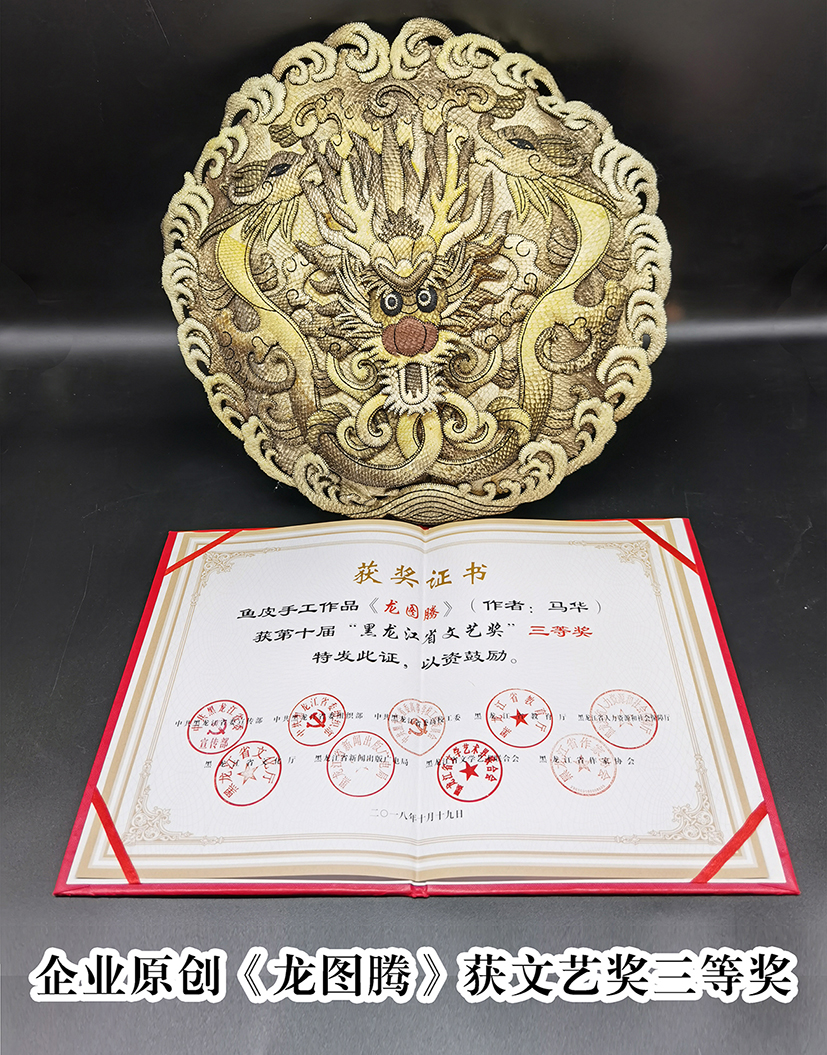 获奖证书
鱼皮手工作品《龙图腾》（作者：马华）
获第十届“黑龙江省文艺奖”三等奖
特发此证，以资鼓励。
中共黑龙江省委宣传部 中共黑龙江省委组织部 中共黑龙江省委高校工委 黑龙江省教育厅 黑龙江省人力资源和社会保障厅
黑龙江省文化厅 黑龙江省新闻出版广电局 黑龙江省文学艺术界联合会 黑龙江省作家协会
二〇一八年十月十九日
企业原创《龙图腾》获文艺奖三等奖